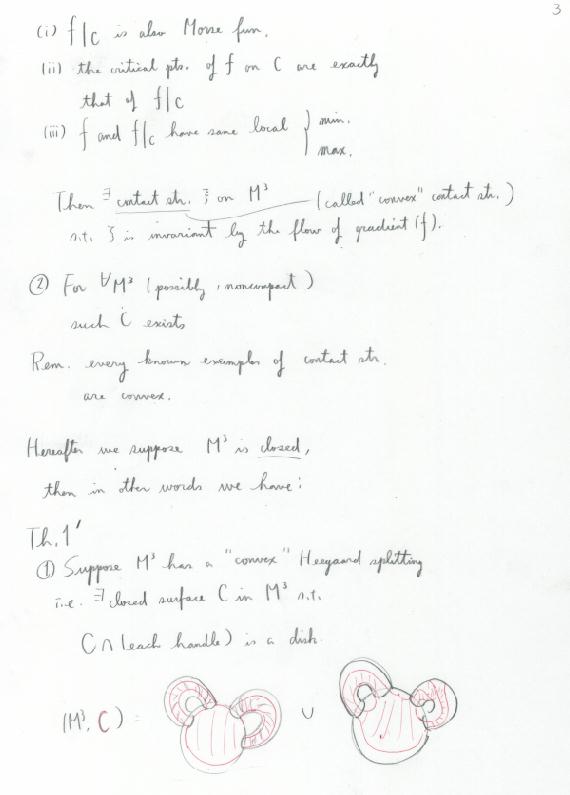 3
(i) f|C is also Morse fun.
(ii) the critical pts. of f on C are exactly
that of f|C
(iii) f and f|C have same local } min.
max.
Then ∃ contact str. ξ on M³ (called "convex" contact str.)
s.t. ξ is invariant by the flow of gradient (f).
② For ∀M³ (possibly, noncompact)
such C exists
Rem. every known examples of contact str.
are convex.
Hereafter we suppose M³ is closed,
then in other words we have:
Th.1'
① Suppose M³ has a "convex" Heegaard splitting
i.e. ∃ closed surface C in M³ s.t.
C∩(each handle) is a disk
(M³, C) = ∪